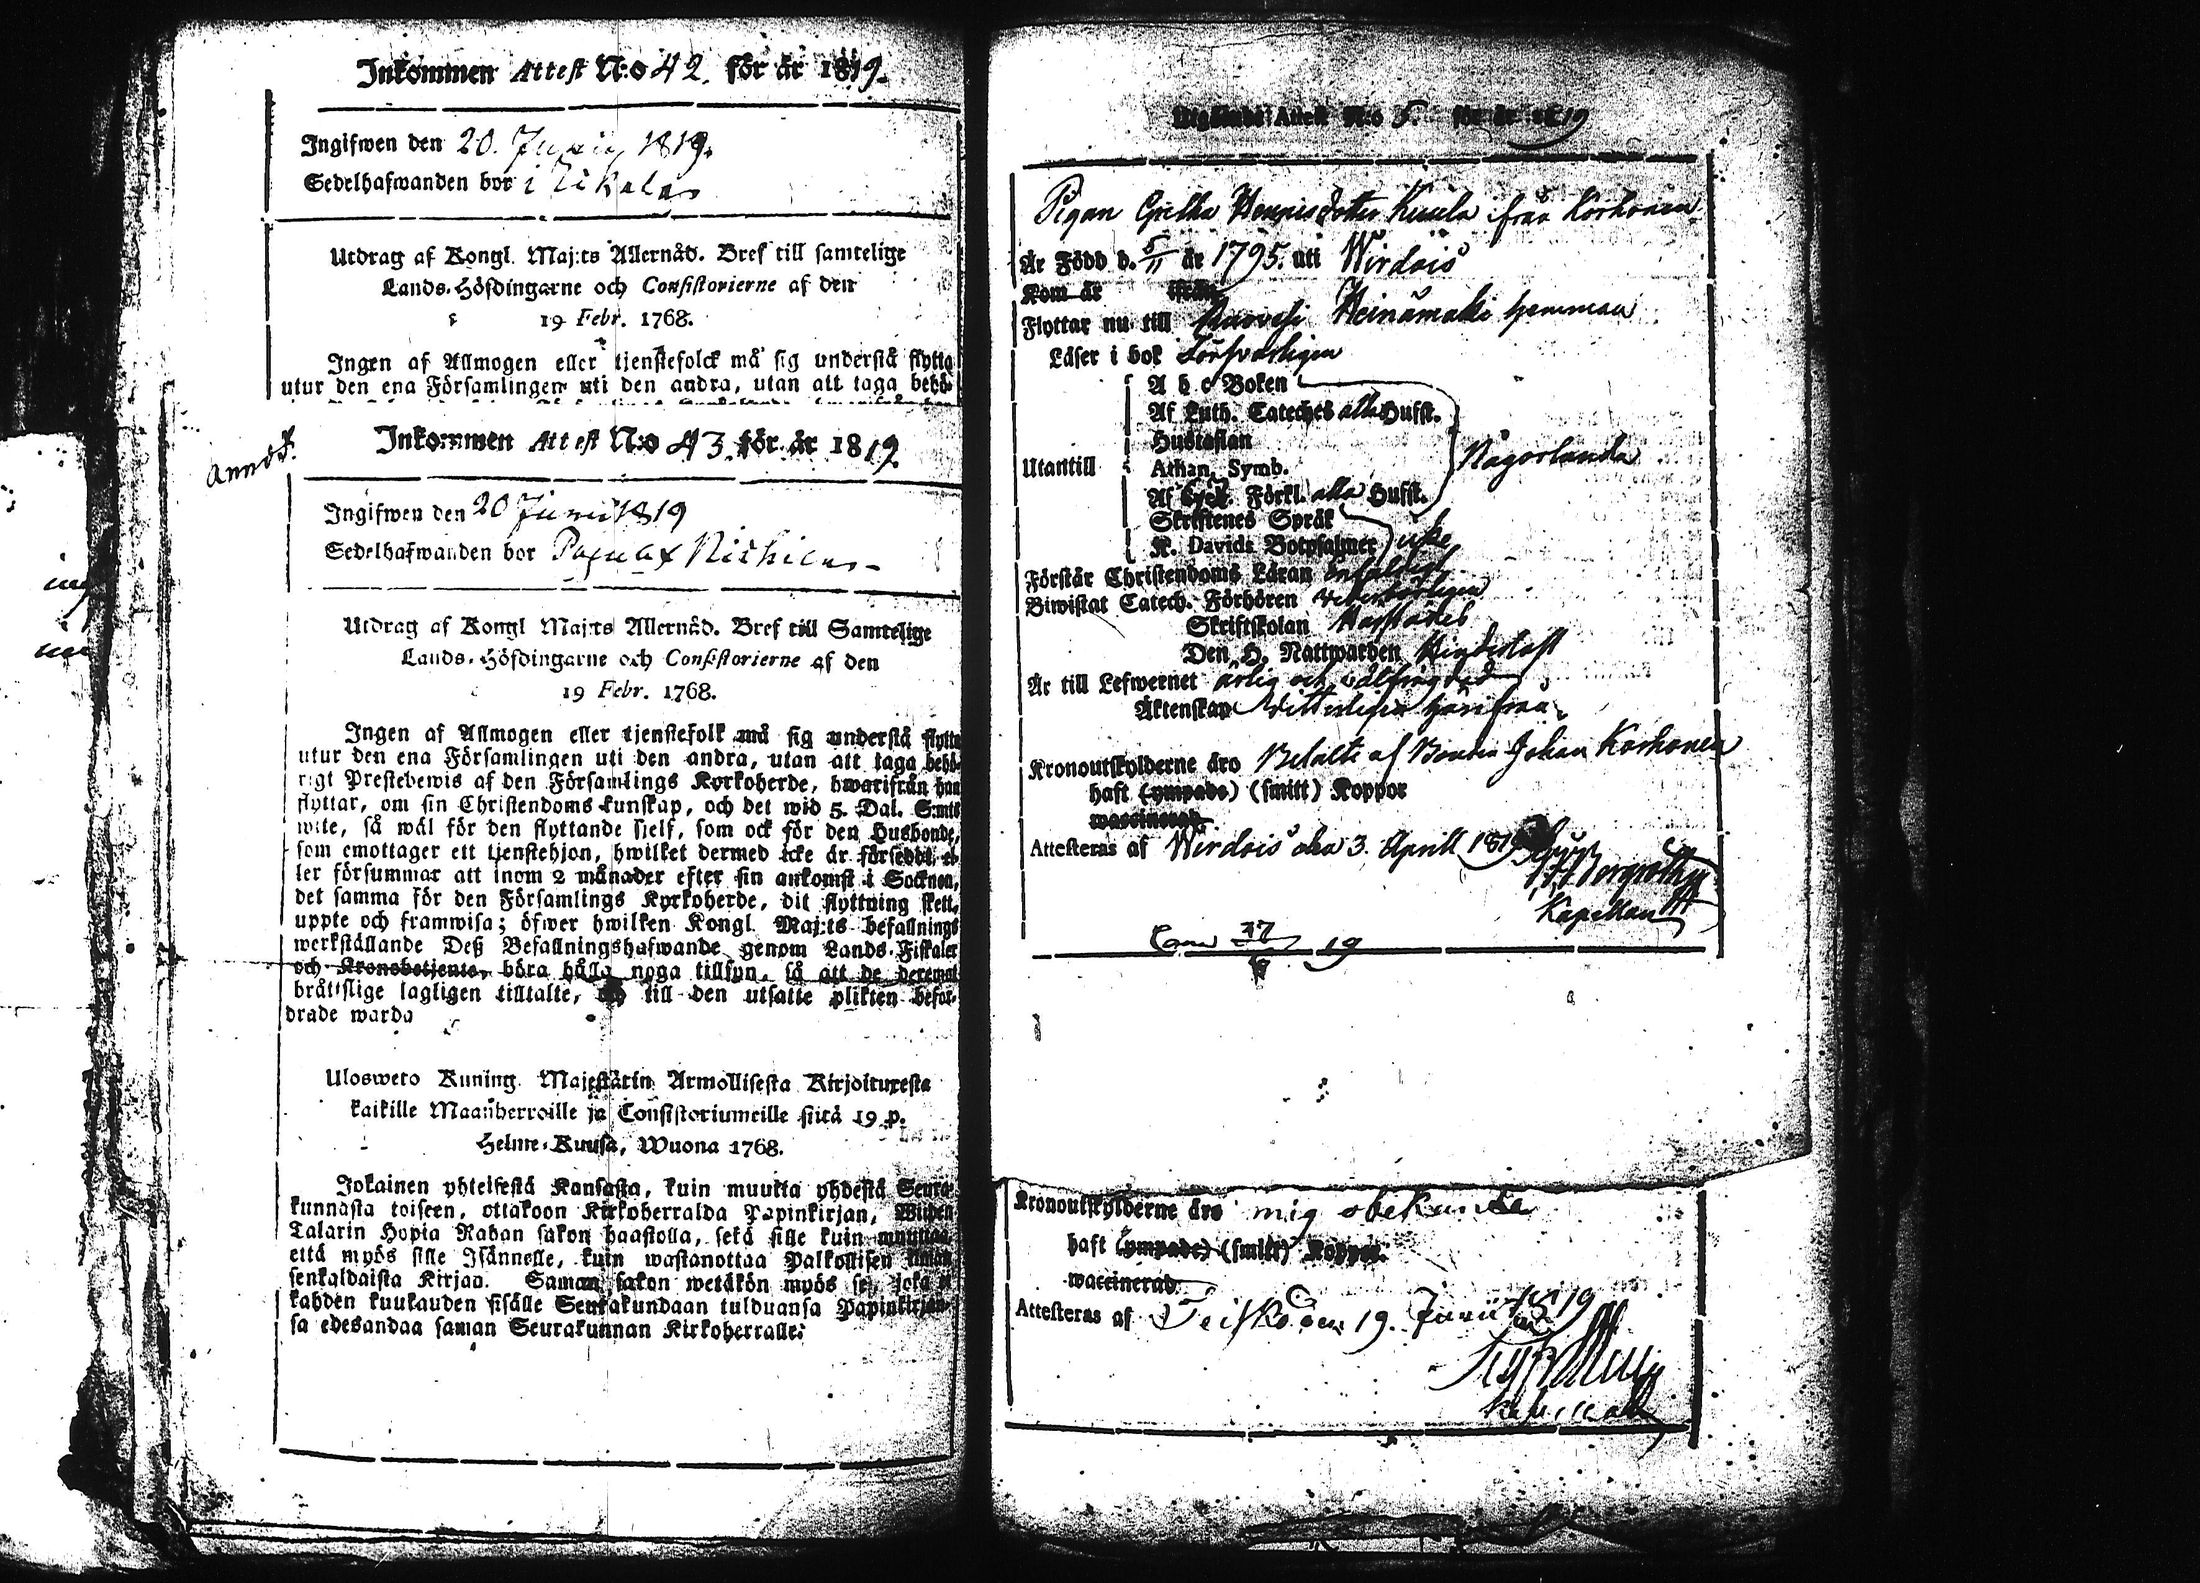 Inkommen Attest N:o 42. för år 1819.
Ingifwen den 20. Junii 1819.
Sedelhafwanden bor i
Utdrag af Kongl. Maj:ts Allernåd. Bref till samtelige
Lands-Höfdingarne och Consistorierne af den
19 Febr. 1768.
Ingen af Allmogen eller tjenstefolck må sig understå flytta
utur den ena Församlingen uti den andra, utan att taga behö-
Inkommen Attest N:o 43. för år 1819.
Ingifwen den 20 Junii 1819
Sedelhafwanden bor
Utdrag af Kongl Maj:ts Allernåd. Bref till Samtelige
Lands-Höfdingarne och Consistorierne af den
19 Febr. 1768.
Ingen af Allmogen eller tjenstefolk må sig understå flytta
utur den ena Församlingen uti den andra, utan att taga behö-
rigt Prestebewis af den Församlings Kyrkoherde, hwarifrån han
flyttar, om sin Christendoms kunskap, och det wid 5. Dal. S:mts
wite, så wäl för den flyttande sielf, som ock för den Husbonde,
som emottager ett tjenstehjon, hwilket dermed icke är försedt, el-
ler försummar att inom 2 månader efter sin ankomst i Socknen,
det samma för den Församlings Kyrkoherde, dit flyttning skett,
uppte och framwisa; öfwer hwilken Kongl. Maj:ts befallnings
werkställande Deß Befallningshafwande genom Lands-Fiskaler
och Kronobetjente, böra hålla noga tillsyn, så att de deremot
bråttslige lagligen tilltalte, och till den utsatte plikten befor-
drade warda
Ulosweto Kuning. Majestätin Armollisesta Kirjoituxesta
kaikille Maanherroille ja Consistoriumeille siitä 19 p.
Helme-Kuusa, Wuona 1768.
Jokainen yhteisestä Kansasta, kuin muutta yhdestä Seura-
kunnasta toiseen, ottakoon Kirkoherralda Papinkirjan, Wiiden
Talarin Hopia Rahan sakon haastolla, sekä sille kuin muuttaa,
että myös sille Isännelle, kuin wastanottaa Palkollisen ilman
senkaldaista Kirjaa. Saman sakon wetäkön myös se, joka ei
kahden kuukauden sisälle Seurakundaan tulduansa Papinkirjan-
sa edesandaa saman Seurakunnan Kirkoherralle.
Utgående Attest N:o 5. för år 1819
Pigan Gretha Henricsdotter Kuusela ifrån Korhonen
Är Född d. 5/11 år 1795. uti Wirdois
Kom år ifrån
Flyttar nu till Ruovesi Heinämäki hemman
Läser i bok Försvarligen
Utantill
A b c Boken
Af Luth. Cateches alla Hufst.
Hustaflan
Athan. Symb.
Af Förkl. alla Hufst.
Någorlunda
Skriftenes Språk
K. Davids Botpsalmer icke
Förstår Christendoms Läran Enfaldigt
Biwistat Catech. Förhören
Skriftskolan
Den H. Nattwarden
Är till Lefwernet ärlig och välfrägdad
Äktenskap Witterligen hinderfri
Kronoutskylderne äro Betalte af Bonden Johan Korhonen
haft (ympade) (smitt) Koppor
waccinerad
Attesteras af Wirdois den 3. Aprill 1819
Kapellan
19
Kronoutskylderne äro mig obekante
haft (ympade) (smitt) Koppor.
waccinerad
Attesteras af Teisko den 19. Junii 1819
Kapellan